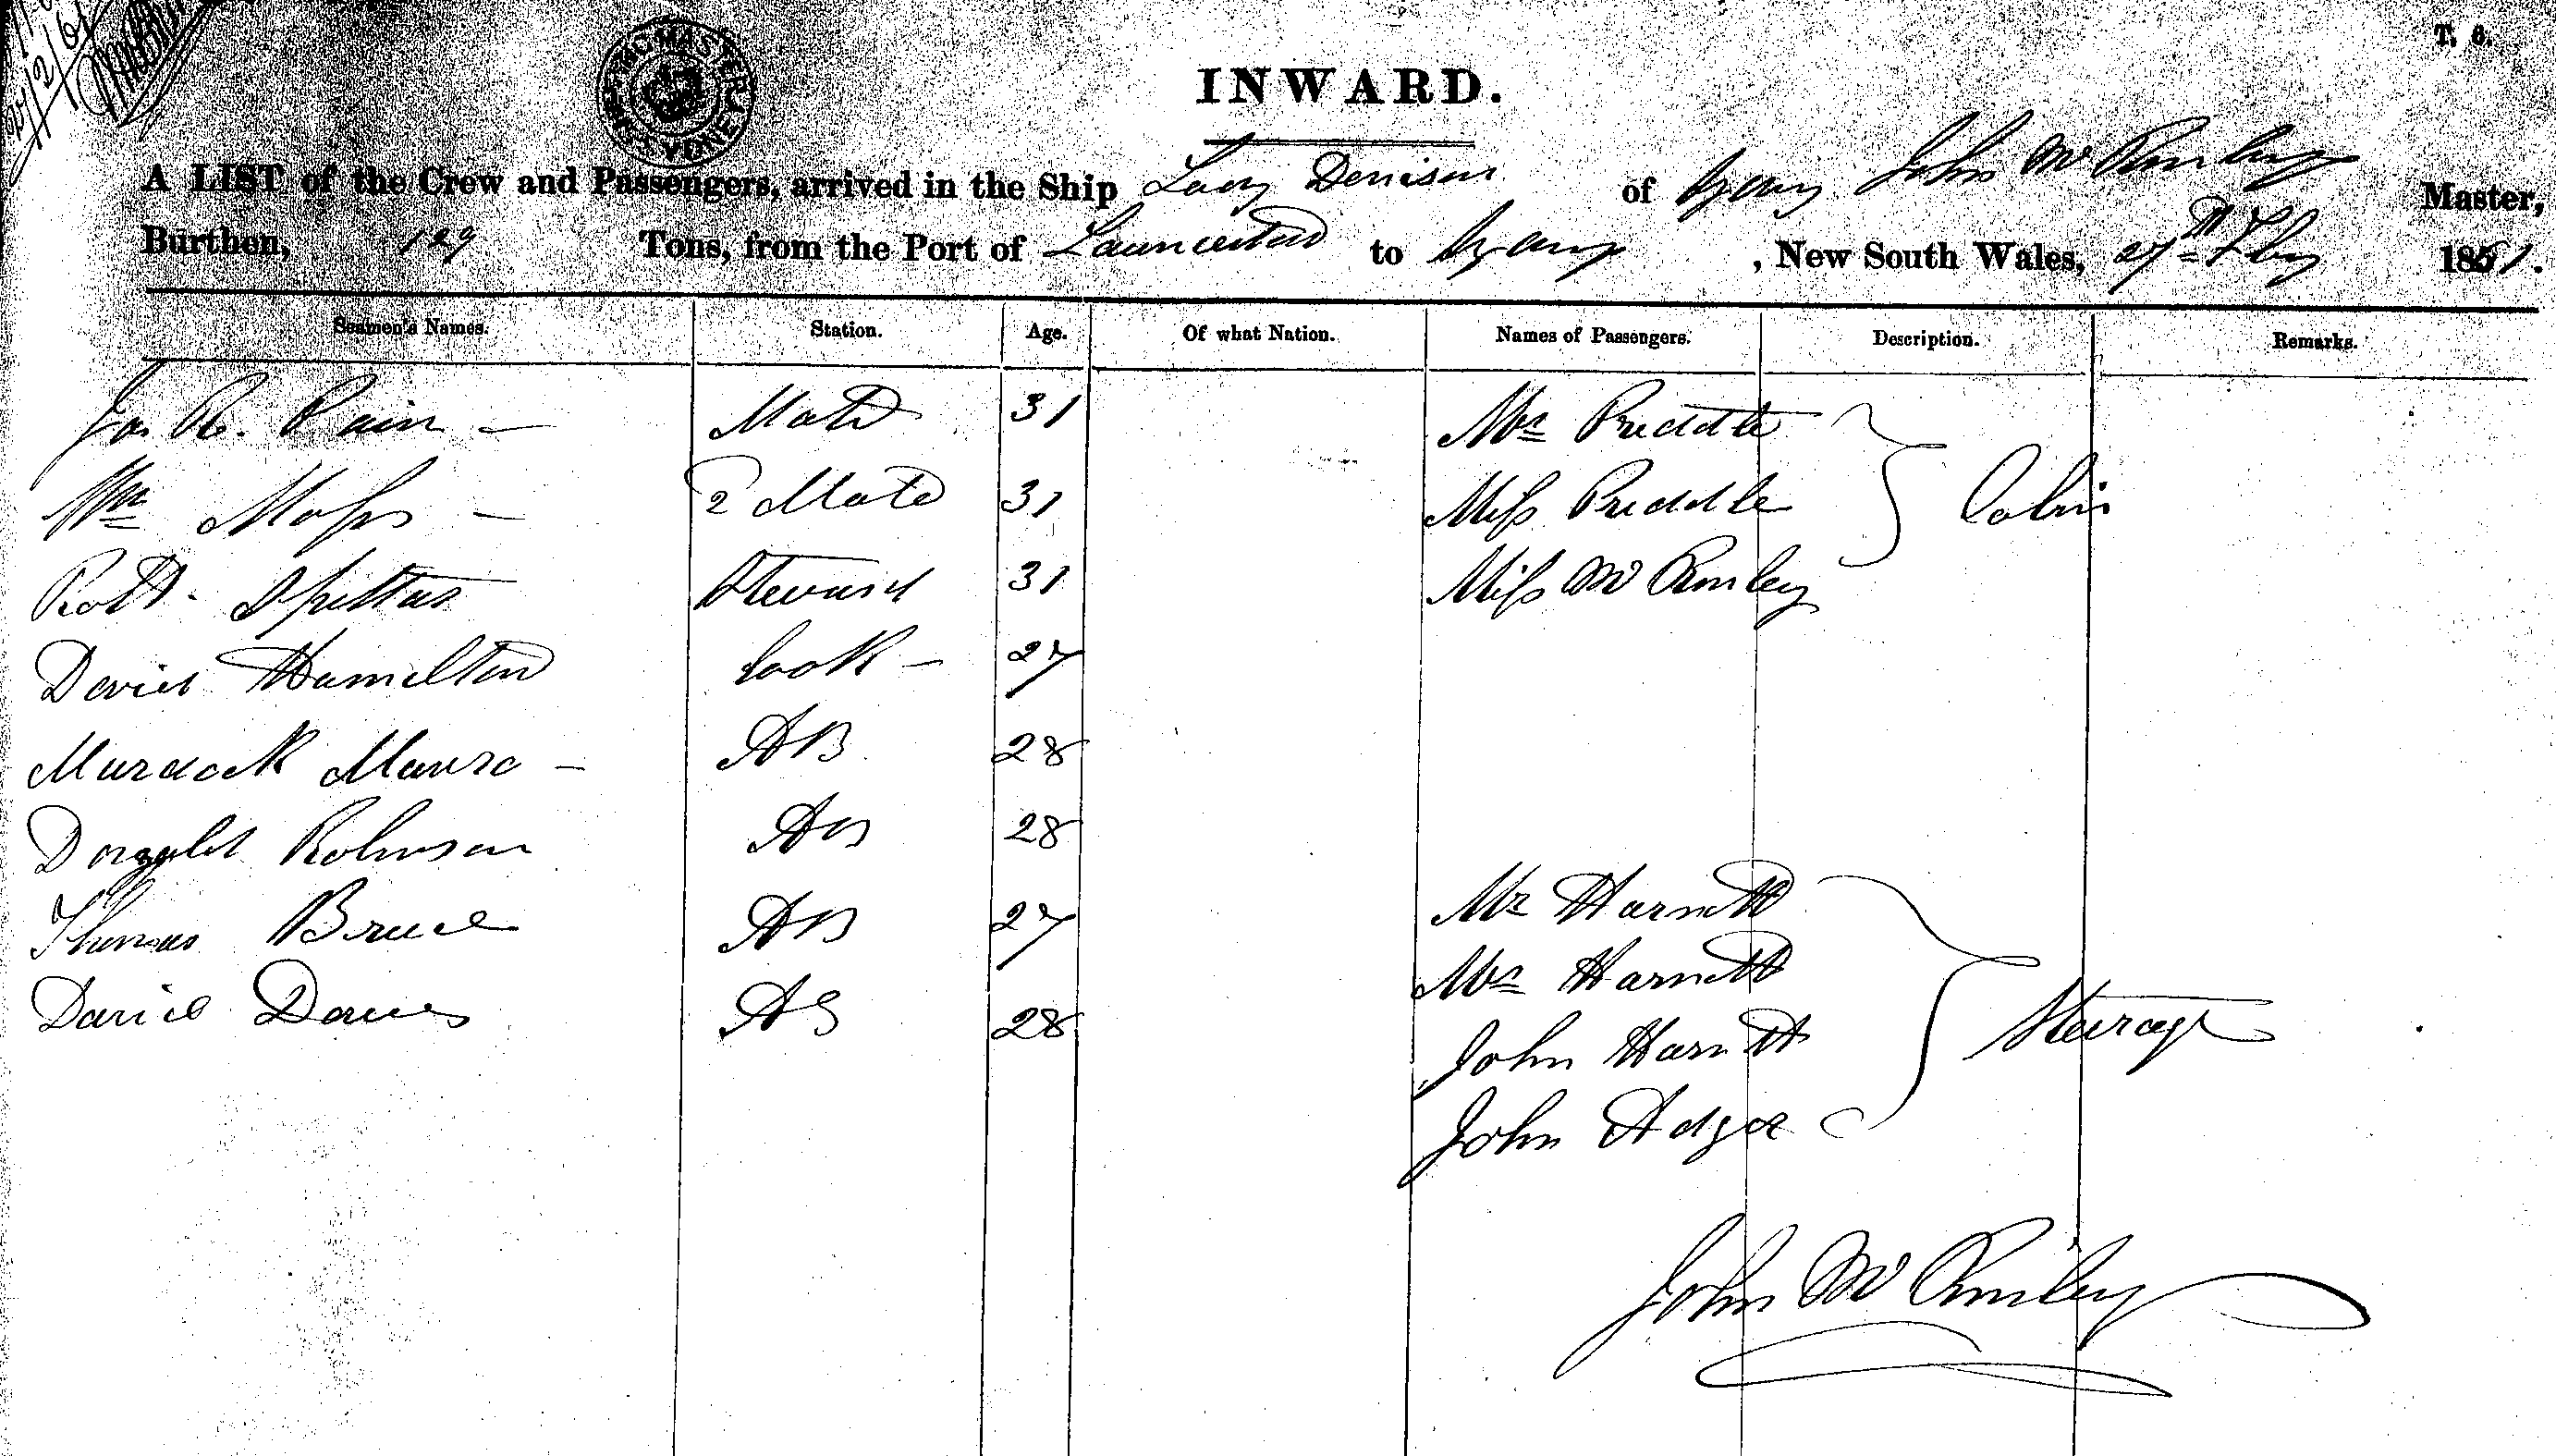 27/2/61
T. 6.
INWARD.
A LIST of the Crew and Passengers, arrived in the Ship Lady Denison of Sydney John Mc Master,
Burthen, 129 Tons, from the Port of Launceston to Sydney, New South Wales, 27th Feby 1861.
Seamen's Names. Station. Age. Of what Nation. Names of Passengers. Description. Remarks.
Jas. R. Pain — Mate 31 Mrs Priddle
Wm Moss — 2 Mate 31 Miss Priddle Cabin
Robt. Steward 31 Miss Mc
David Hamilton Cook — 27
Murdock Munro — AB 28
Robinson AB 28
Thomas Bruce AB 27 Mr Harnett
Daniel AB 28 Mrs Harnett
John Harnett Steerage
John
John Mc